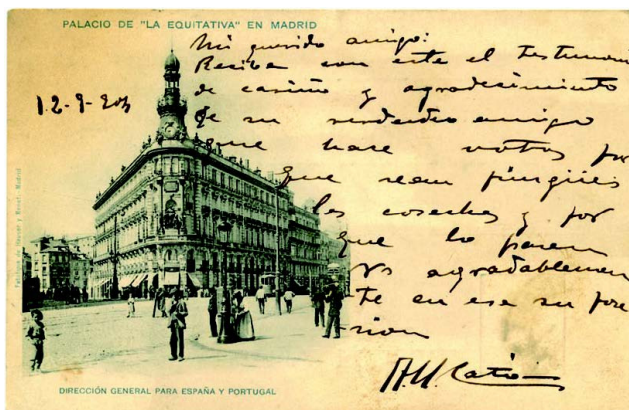 PALACIO DE "LA EQUITATIVA" EN MADRID
Mi querido amigo:
Reciba con este el testimoni
de cariño y agradecimiento
de su verdadero amigo
que hace votos por
que sean pingües
las cosechas y por
que lo pasen
Vs agradablemen
te en esa su pose
sion
DIRECCIÓN GENERAL PARA ESPAÑA Y PORTUGAL